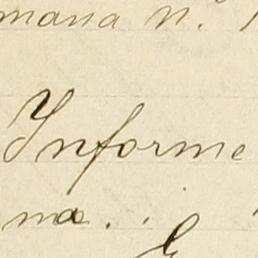 mana n.°
Informe
na. . .